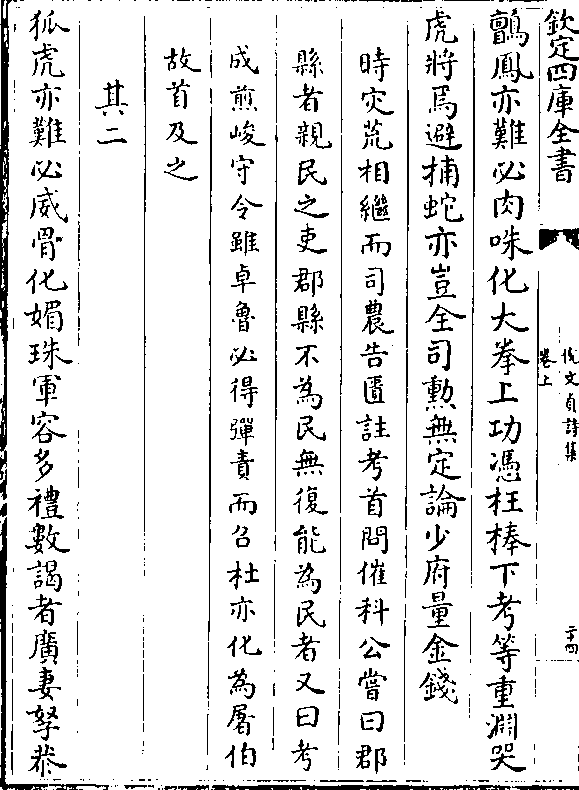 欽定四庫全書
倪文貞詩集
卷上
二十四
鸇鳳亦難必肉咮化大拳上功憑枉棒下考等重淵哭
虎將焉避捕蛇亦豈全司勲無定論少府量金錢
時灾荒相繼而司農告匱註考首問催科公嘗曰郡
縣者親民之吏郡縣不為民無復能為民者又曰考
成煎峻守令雖卓魯必得彈責而召杜亦化為屠伯
故首及之
其二
狐虎亦難必威骨化媚珠軍容多禮數謁者廣妻孥恭